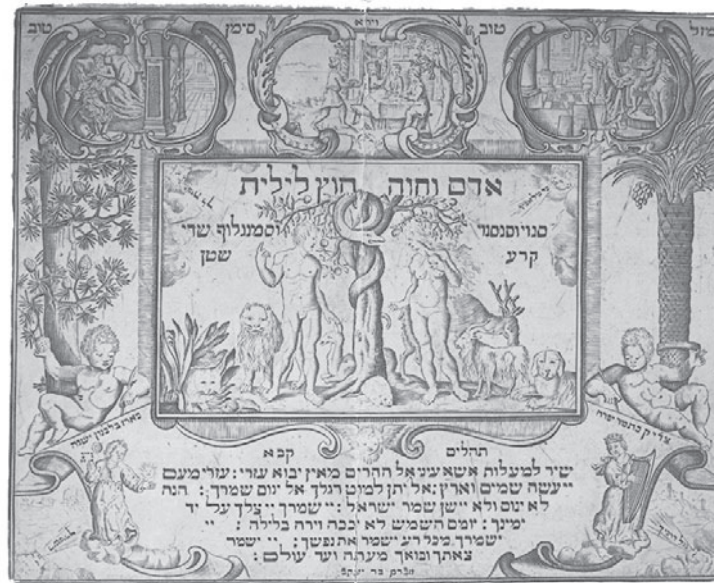 מזל טוב סימן טוב
אדם וחוה חוץ לילית
סנוי וסנסנוי וסמנגלוף שרי
קרע שטן
צדיק כתמר יפרח
כארז בלבנון ישגה
תהלים קכא
שיר למעלות אשא עיני אל ההרים מאין יבוא עזרי: עזרי מעם
יי עשה שמים וארץ: אל יתן למוט רגלך אל ינום שמרך: הנה
לא ינום ולא יישן שמר ישראל: יי שמרך יי צלך על יד
ימינך: יומם השמש לא יככה וירח בלילה: יי
ישמרך מכל רע ישמר את נפשך: יי ישמר
צאתך ובואך מעתה ועד עולם:
אברם בר יעקב